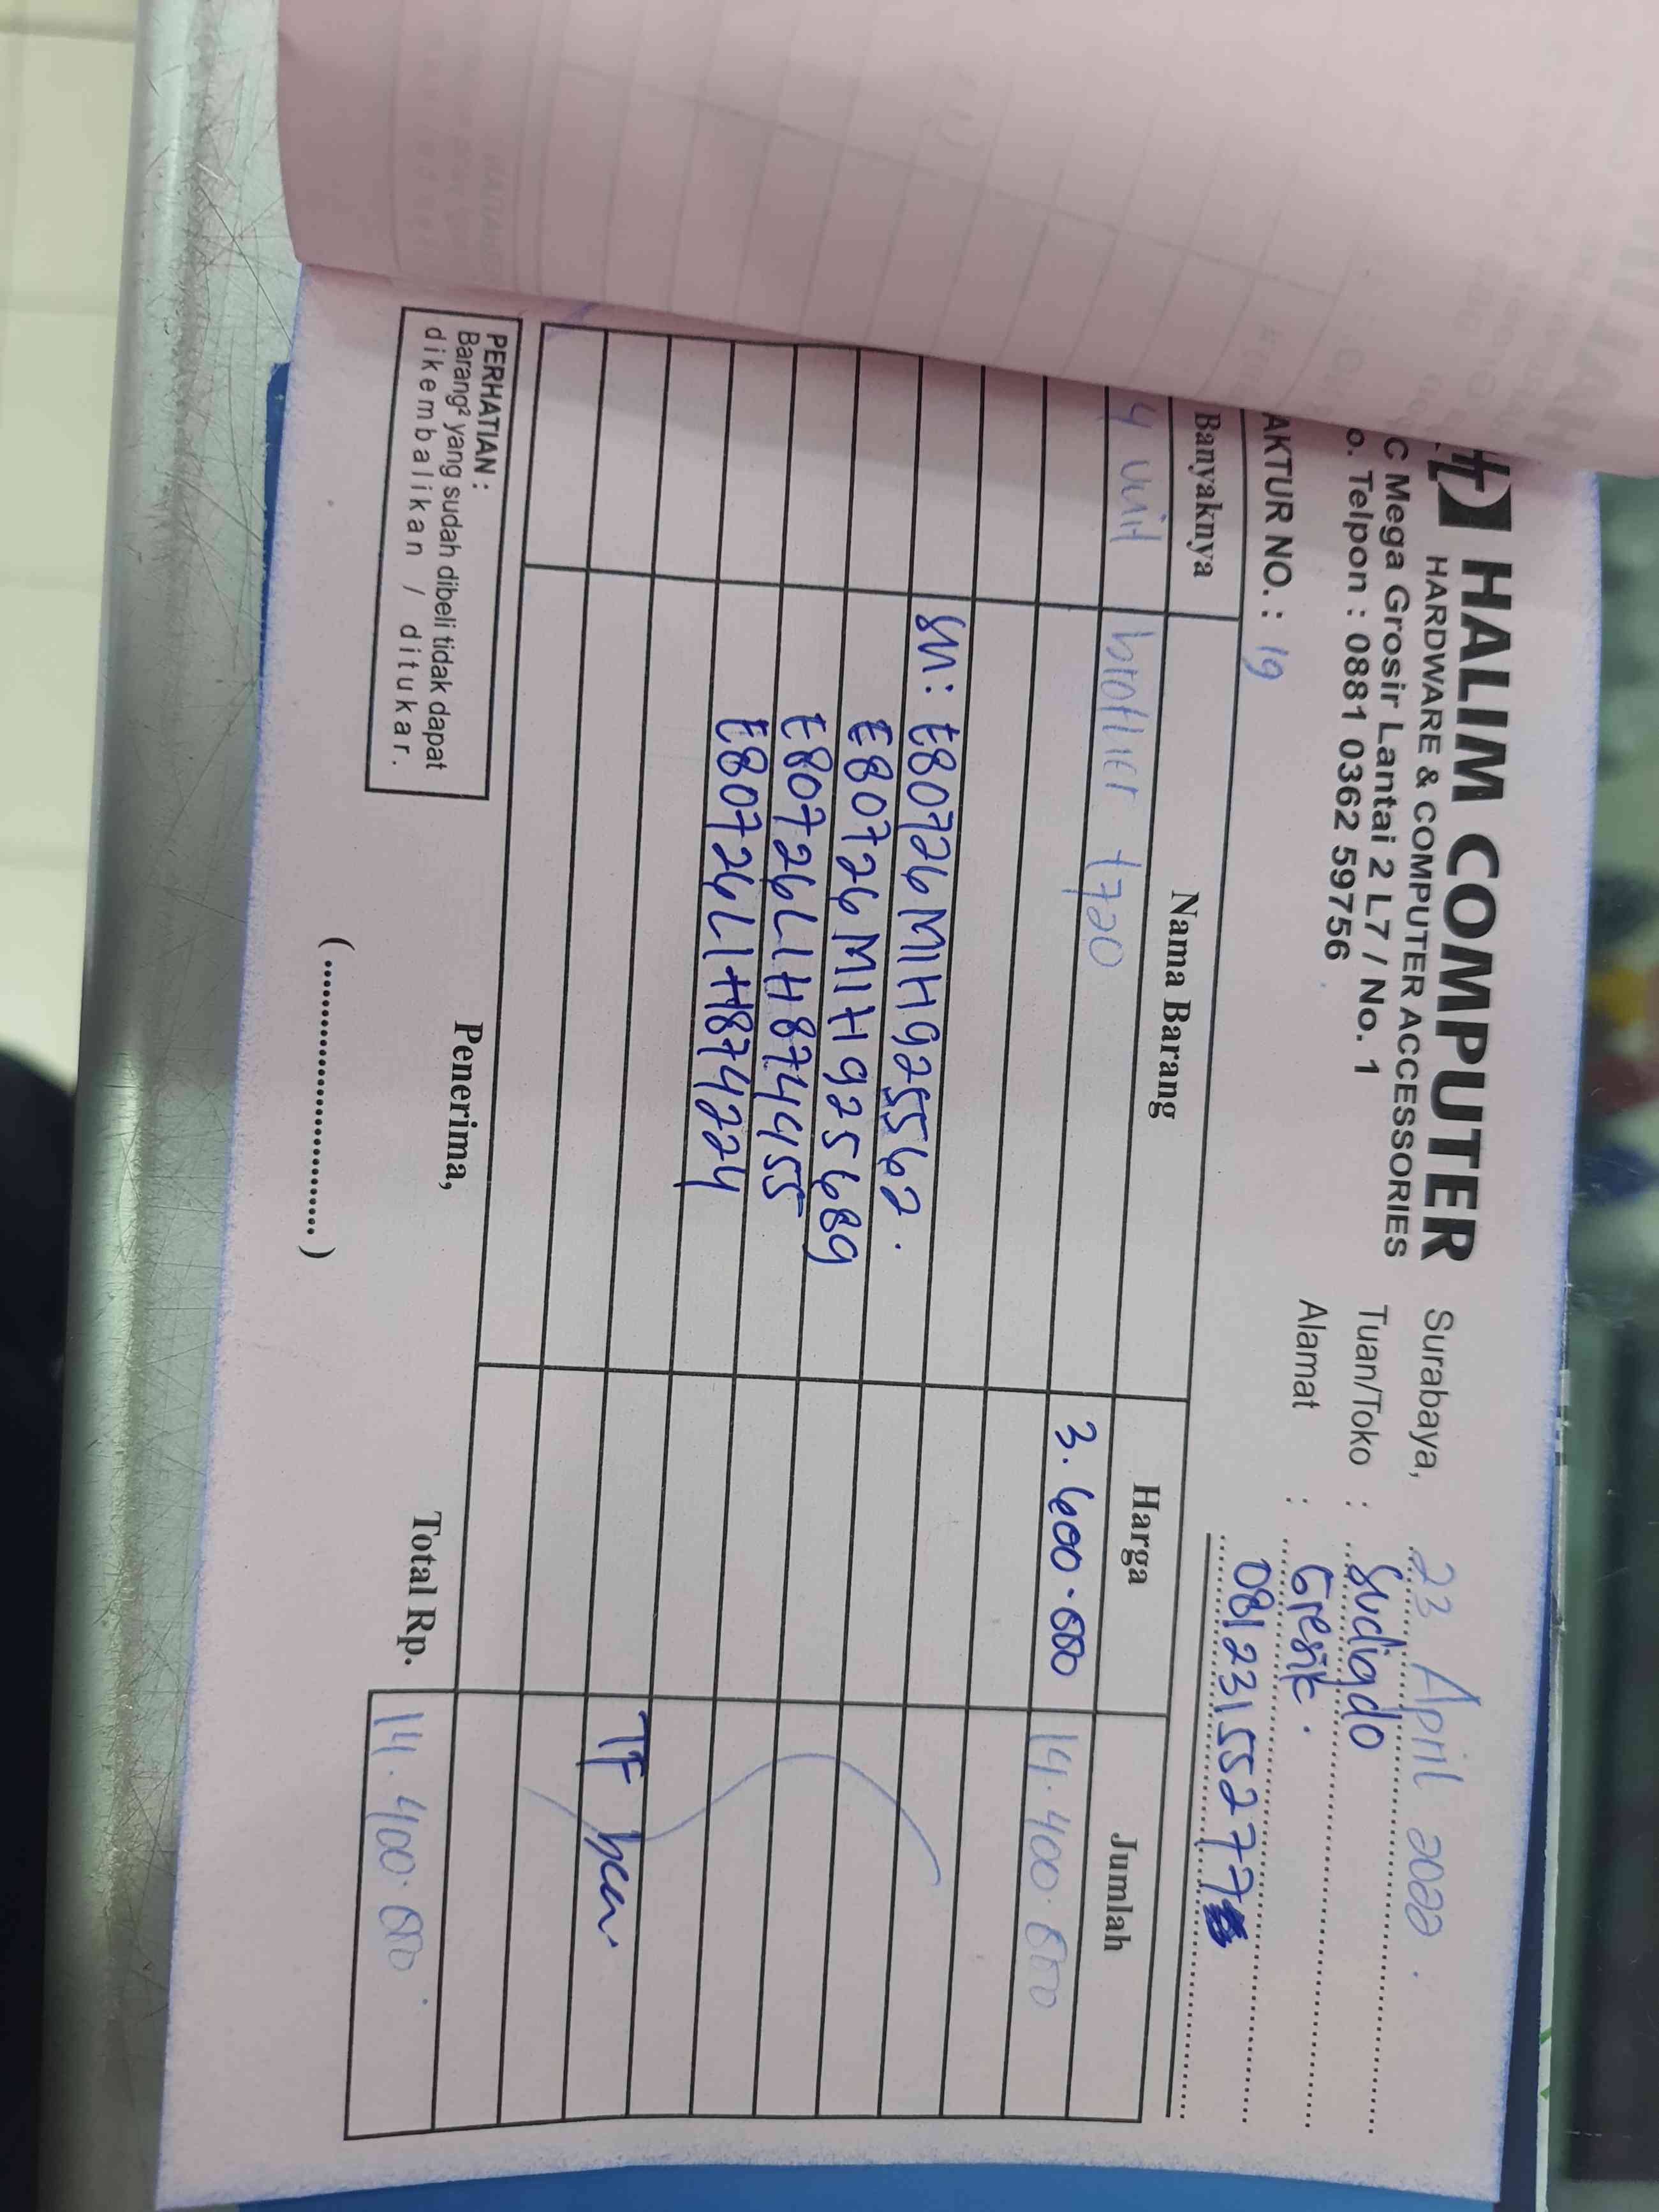 HALIM COMPUTER
HARDWARE & COMPUTER ACCESSORIES
C Mega Grosir Lantai 2 L7 / No. 1
o. Telpon : 0881 0362 59756
Surabaya, 23 April 2022.
Tuan/Toko : Sudigdo
Alamat : Gresik.
081231552777
AKTUR NO. : 19
Banyaknya Nama Barang Harga Jumlah
4 unit brother t720 3.600.000 14.400.000
sn: E80726M1H925562.
E80726M1H925689
E80726L1H874455
E80726L1H874224
TF bca.
PERHATIAN :
Barang² yang sudah dibeli tidak dapat
dikembalikan / ditukar.
Penerima,
(................................)
Total Rp. 14.400.000